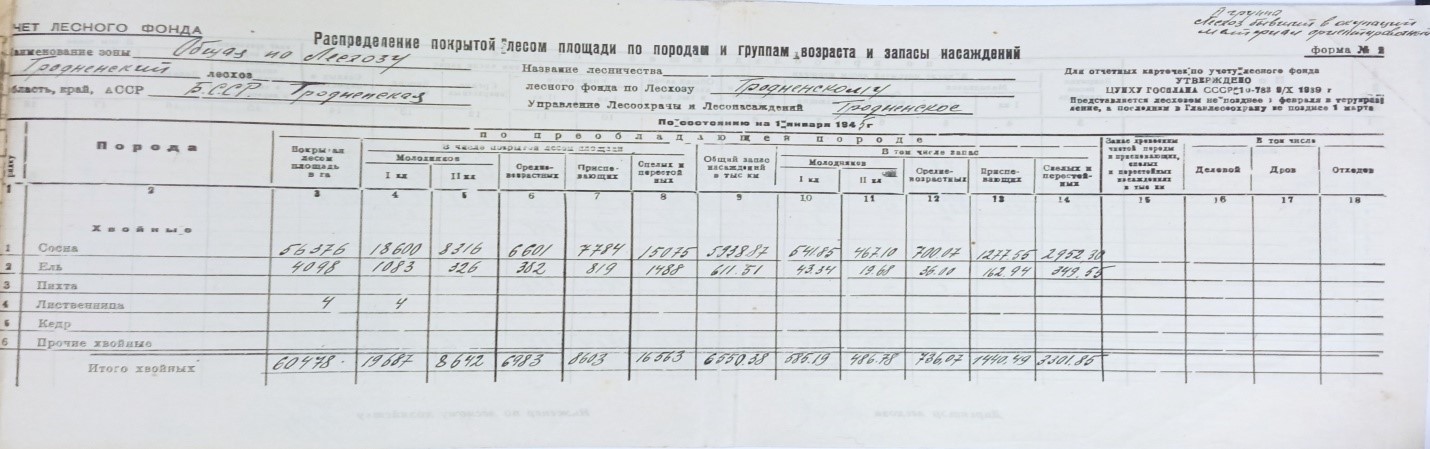 ЧЕТ ЛЕСНОГО ФОНДА
II группа
Лесхоз бывший в окупации
материал ориентировочный
Распределение покрытой лесом площади по породам и группам возраста и запасы насаждений
форма № 2
Наименование зоны Общая по Лесхозу
Гродненский лесхоз
область, край, АССР БССР Гродненская
Название лесничества
лесного фонда по Лесхозу Гродненскому
Управление Лесоохраны и Лесонасаждений Гродненское
Для отчетных карточек по учету лесного фонда
УТВЕРЖДЕНО
ЦУНХУ ГОСПЛАНА СССР 10-783 9/X 1939 г
Представляется лесхозом не позднее 1 февраля в территориал
ление, а последним в Главлесоохрану не позднее 1 марта
По состоянию на 1 января 1945 г
по преобладающей породе
Порода
Покрытая лесом площадь в га
В числе покрытой лесом площади
Молодняков
I кл
II кл
Средне-возрастных
Приспе-вающих
Спелых и перестойных
Общий запас насаждений в тыс км
В том числе запас
Молодняков
I кл
II кл
Средне-возрастных
Приспе-вающих
Спелых и перестой-ных
Запас древесины чистой породы и приспевающих, спелых и перестойных насаждениях в тыс км
В том числе
Деловой
Дров
Отходов
1 2 3 4 5 6 7 8 9 10 11 12 13 14 15 16 17 18
Хвойные
1 Сосна 56376 18600 8316 6601 7784 15075 5938.87 541.85 467.10 700.07 1277.55 2952.30
2 Ель 4098 1083 326 382 819 1488 611.51 43.34 19.68 36.00 162.94 349.55
3 Пихта
4 Лиственница 4 4
5 Кедр
6 Прочие хвойные
Итого хвойных 60478 19687 8642 6983 8603 16563 6550.38 585.19 486.78 736.07 1440.49 3301.85